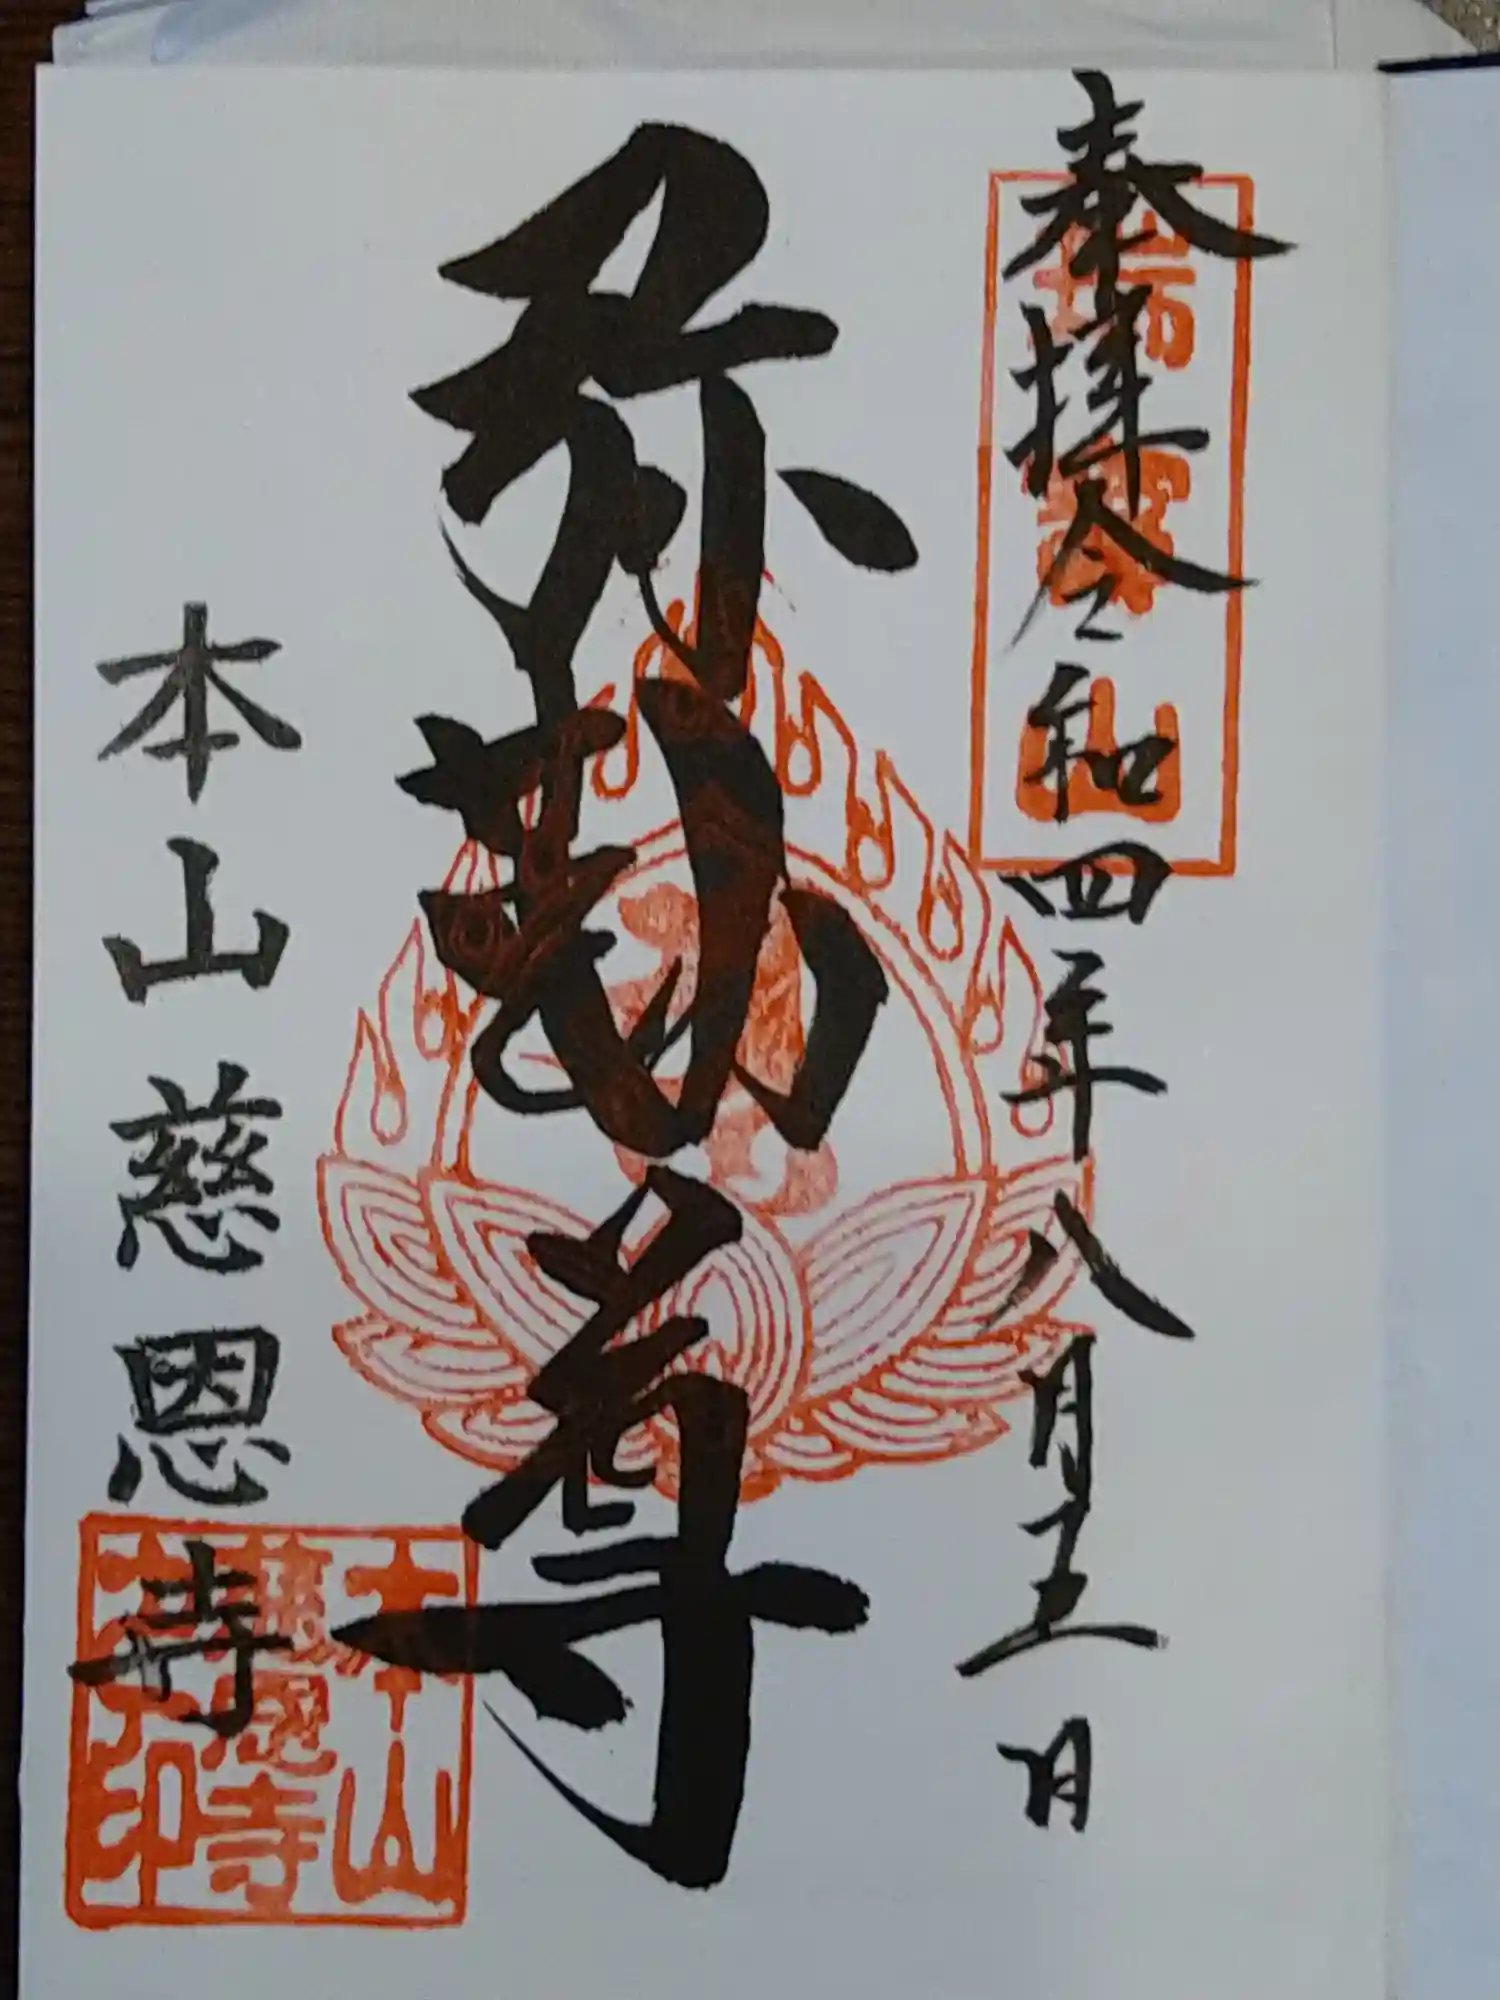 奉拝令和四年八月五日
瑞寳山
弥勒尊
本山慈恩寺
本山
慈恩寺